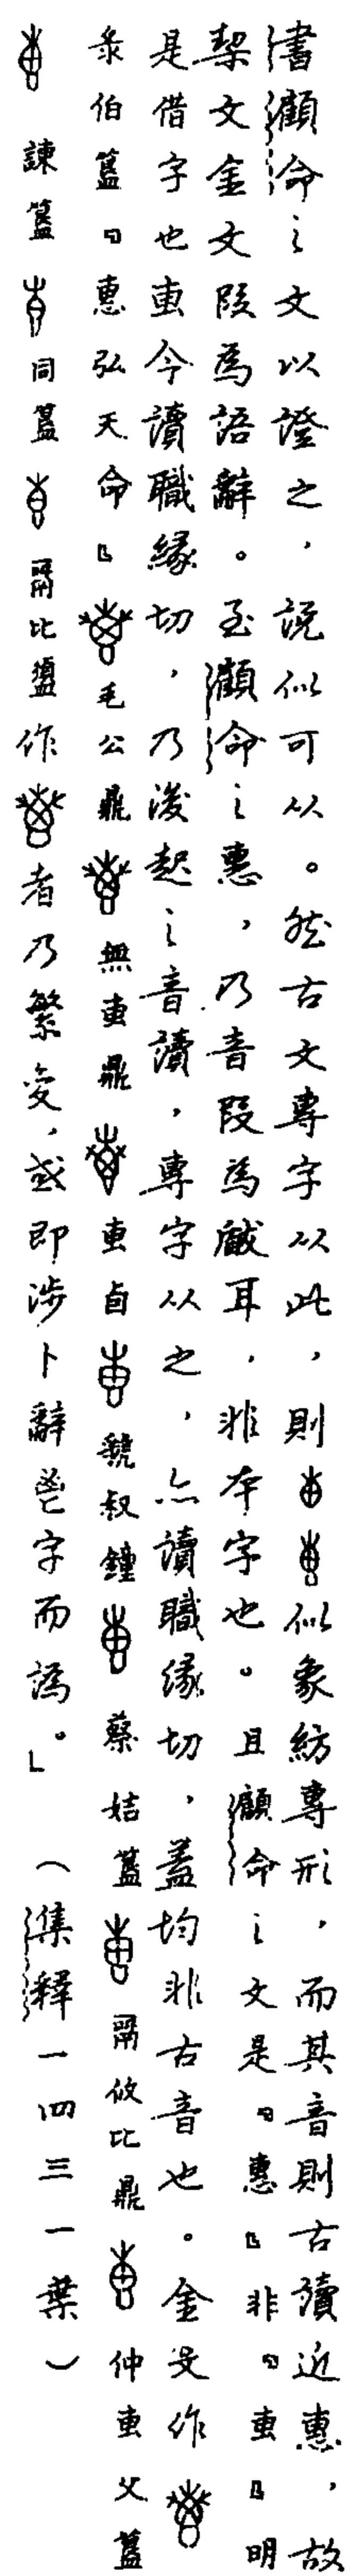 書顧命之文以證之，說似可从。然古文專字从此，則似象紡專形，而其音則古讀近惠，故
栔文金文叚為語辭。至顧命之惠，乃音叚為惠耳，非本字也。且顧命之文是『惠』非『叀』明
是借字也叀今讀職緣切，乃後起之音讀，專字从之，亦讀職緣切，蓋均非古音也。金文作
彔伯簋『惠弘天命』毛公鼎無叀鼎叀卣虢叔鐘蔡姞簋鬲攸比鼎仲叀父簋
諫簋同簋鬲比盨作者乃繁变，或即涉卜辭鬯字而譌。」（集釋一四三一葉）